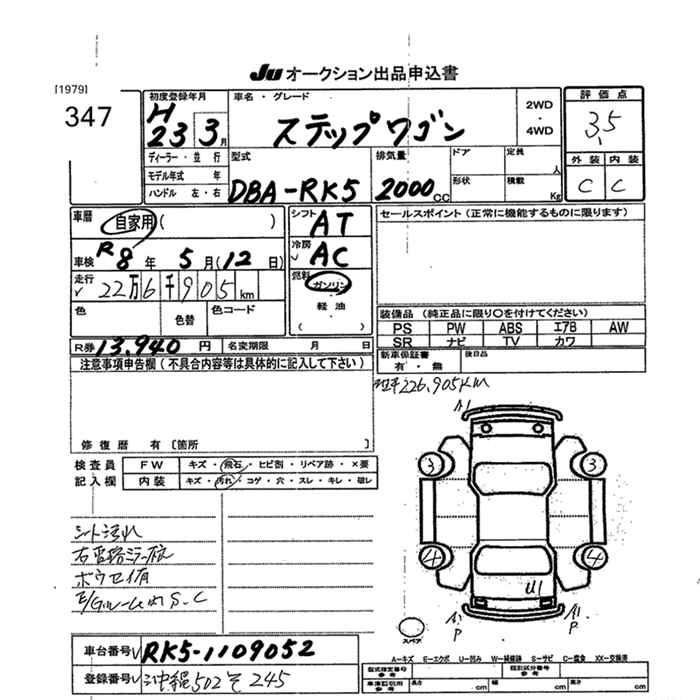 JU オークション出品申込書
[1979]
347
初度登録年月
H
23 3月
車名・グレード
ステップワゴン
2WD
・
4WD
評価点
3.5
外装 内装
C C
ディーラー・並行
モデル年式 年
ハンドル 左・右
型式
DBA-RK5
排気量
2000cc
ドア
形状
定員
人
積載
Kg
車歴
自家用( )
車検 R8年 5月(12日)
走行
22万6千905km
色
色替
色コード
シフト
AT
冷房
AC
燃料
ガソリン
軽油
( )
セールスポイント(正常に機能するものに限ります)
装備品(純正品に限り○を付けてください)
PS PW ABS エアB AW
SR ナビ TV カワ
新車保証書
有・無
後日品
R券 13,940円
名変期限 月 日
注意事項申告欄(不具合内容等は具体的に記入して下さい)
修復歴 有〔箇所 〕
226,905KM
A1
3 3
4 4
U1
P P
スペア
検査員
記入欄
FW キズ・飛石・ヒビ割・リペア跡・×要
内装 キズ・汚れ・コゲ・穴・スレ・キレ・破レ
シート汚れ
ボウセイ有
S.C
A-キズ E-エクボ U-凹み W-補修跡 S-サビ C-腐食 XX-交換済
車台番号 RK5-1109052
登録番号 沖縄502そ245
型式指定番号
類別区分番号
長さ cm 幅 cm 高さ cm